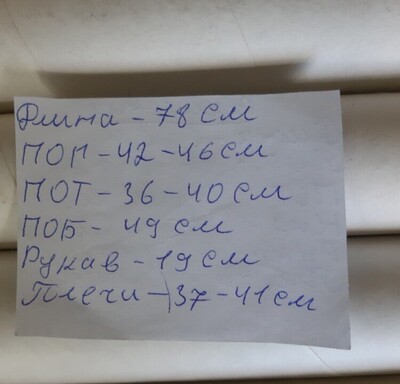 Длина - 78 см
ПОГ - 42 - 46 см
ПОТ - 36 - 40 см
ПОБ - 49 см
Рукав - 19 см
Плечи - 37 - 41 см